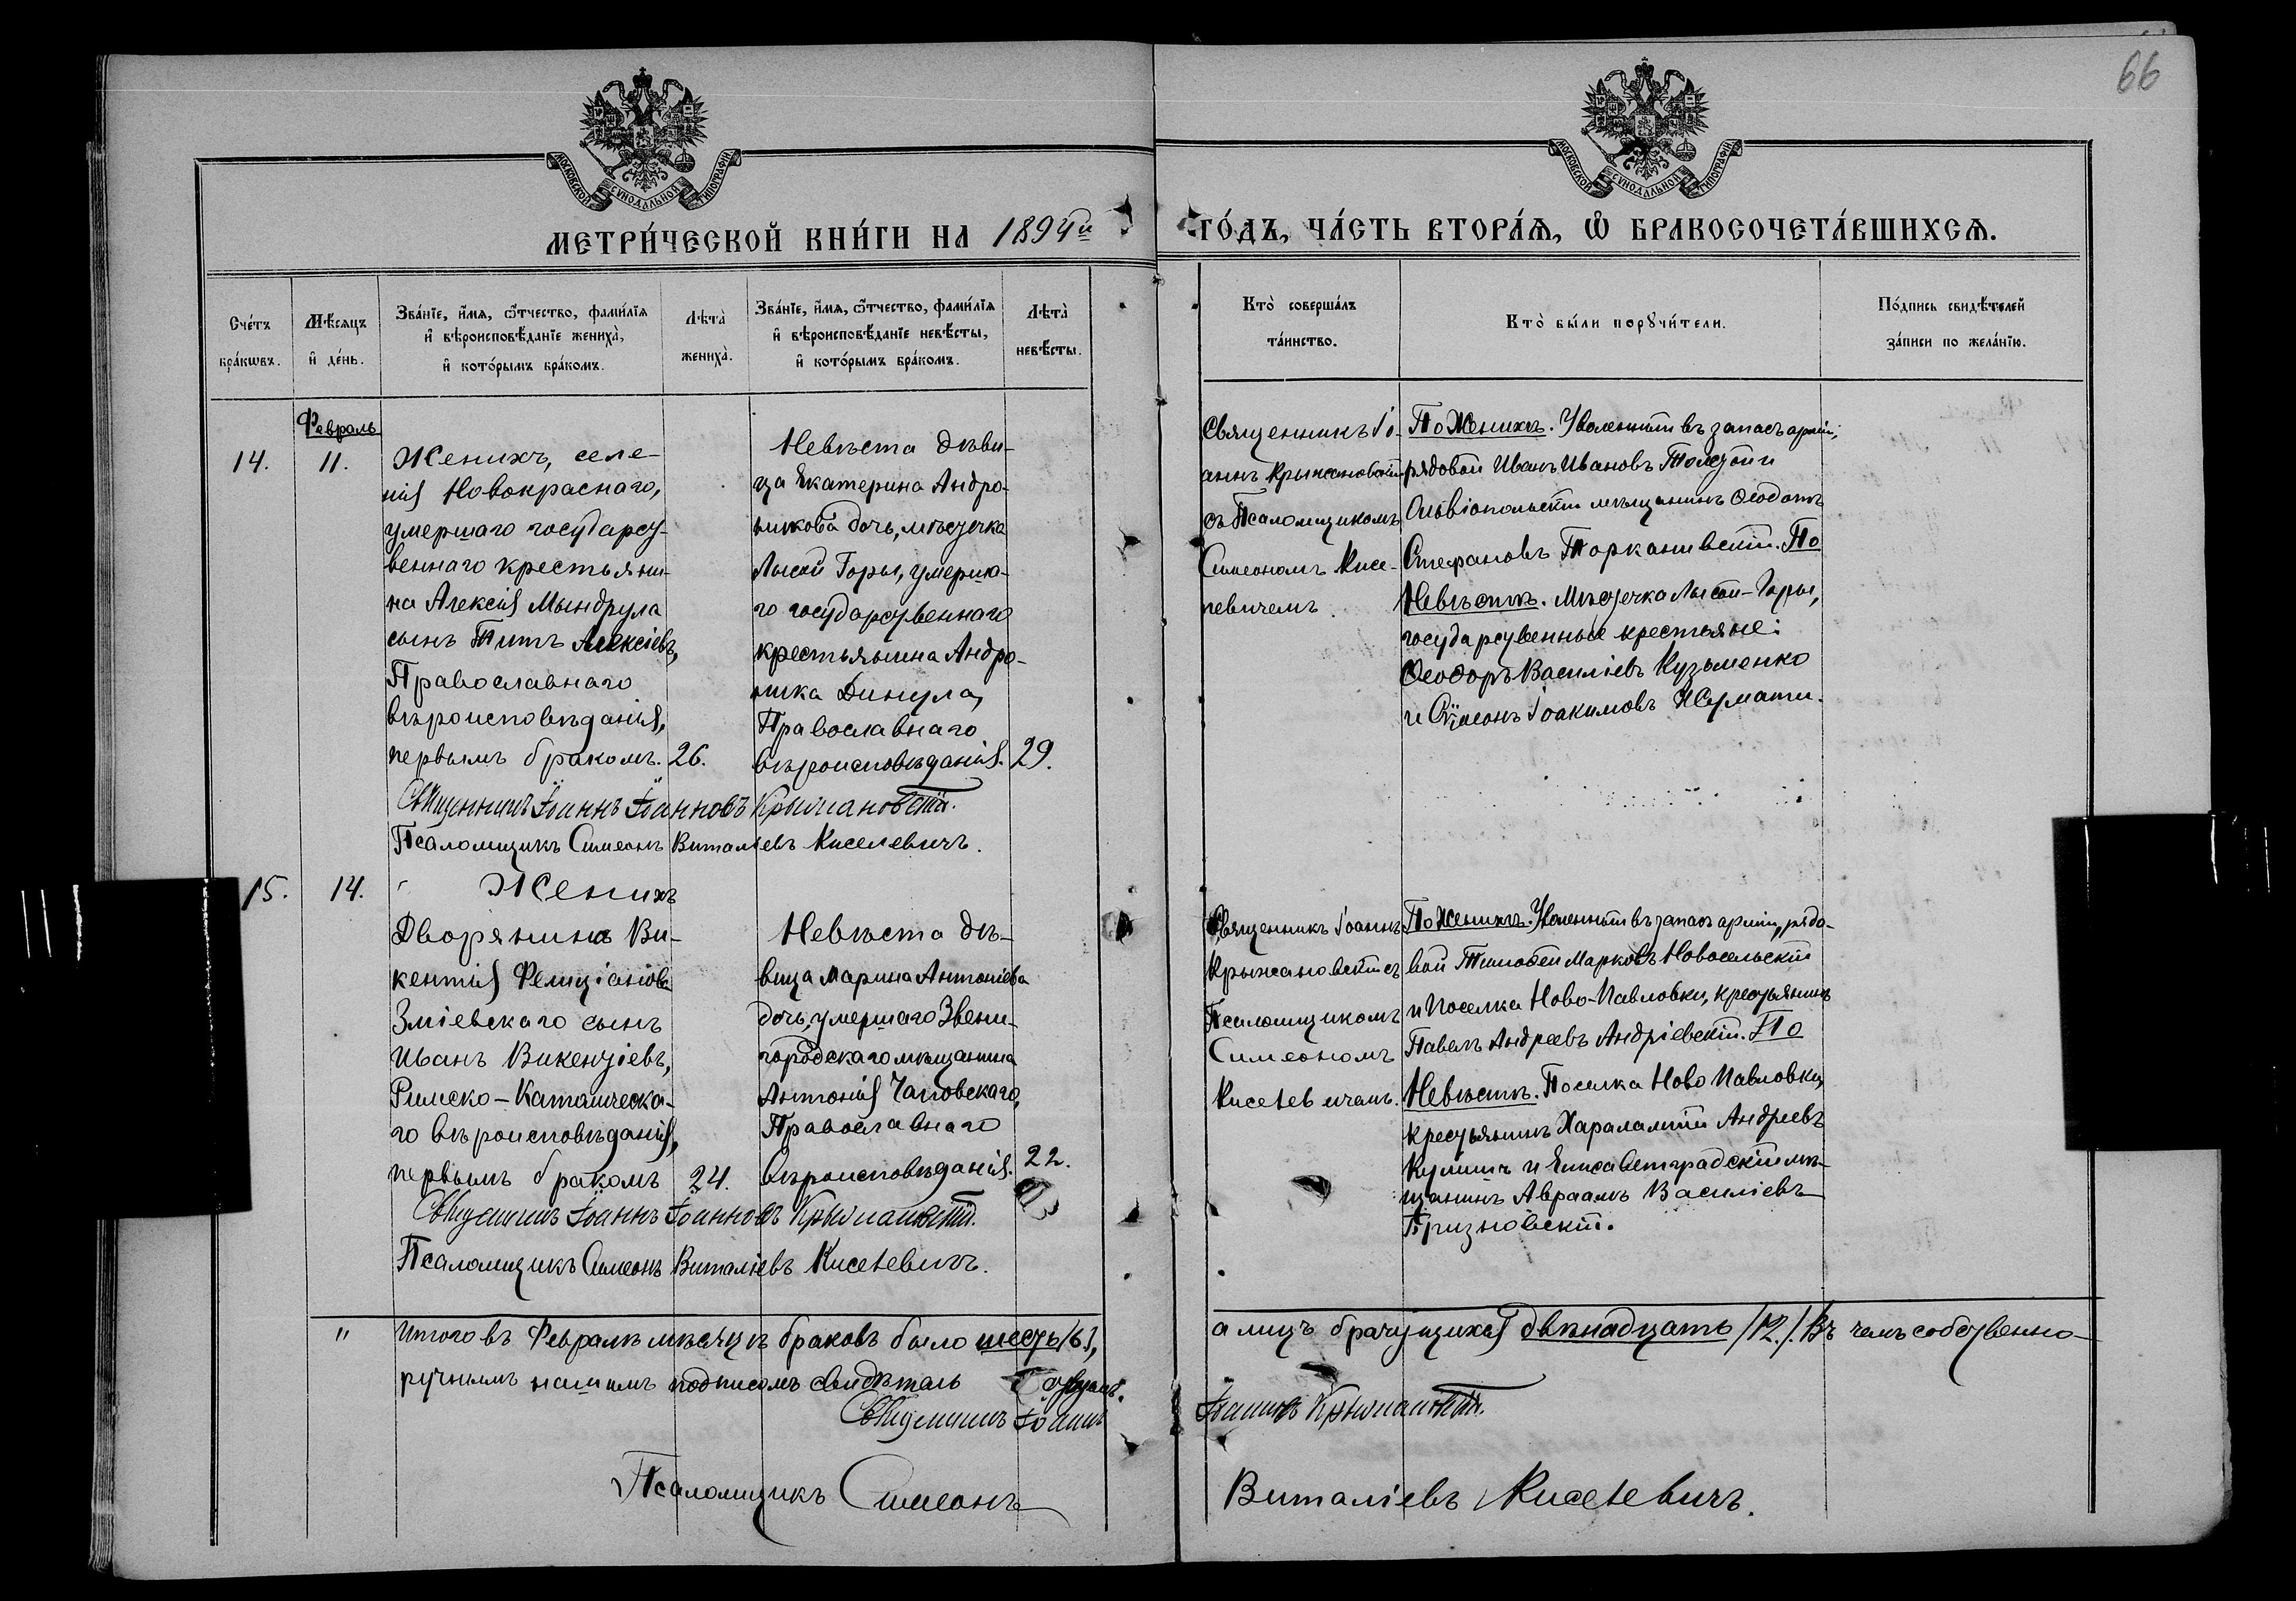 66
МОСКОВСКОЙ СѴНОДАЛЬНОЙ ТИПОГРАФІИ
МОСКОВСКОЙ СѴНОДАЛЬНОЙ ТИПОГРАФІИ
МЕТРИ́ЧЕСКОЙ КНИ́ГИ НА 1894й ГО́ДЪ, ЧА́СТЬ ВТОРА́Ѧ, Ѡ҆ БРАКОСОЧЕТА́ВШИХСѦ.
Сче́тъ
бра́кѡвъ.
Мѣ́сяцъ
и҆ де́нь.
Зва́нїе, и҆́мя, ѻ҆́тчество, фами́лїя
и҆ вѣроисповѣ́данїе жениха̀,
и҆ кото́рымъ бра́комъ.
Лѣта̀
жениха̀.
Зва́нїе, и҆́мя, ѻ҆́тчество, фами́лїя
и҆ вѣроисповѣ́данїе невѣ́сты,
и҆ кото́рымъ бра́комъ.
Лѣта̀
невѣ́сты.
Кто̀ соверша́лъ
та́инство.
Кто̀ бы́ли порꙋчи́тели.
По́дпись свидѣ́телей
за́писи по жела́нїю.
14.
Февраль
11.
Женихъ, селе-
нія Новокраснаго,
умершаго государст-
веннаго крестьяни-
на Алексія Мындрула
сынъ Титъ Алексіевъ,
Православнаго
вѣроисповѣданія,
первымъ бракомъ.
26.
Невѣста дѣви-
ца Екатерина Андро-
никова дочь, мѣстечка
Лысой Горы, умерша-
го государственнаго
крестьянина Андро-
ника Динула,
Православнаго
вѣроисповѣданія.
29.
Священникъ Іоаннъ Іоанновъ Крыжановскій.
Псаломщикъ Симеонъ Виталіевъ Киселевичъ.
Священникъ Іо-
аннъ Крыжановскій
съ Псаломщикомъ
Симеономъ Кисе-
левичемъ
По Женихѣ. Уволенный въ запасъ арміи,
рядовой Иванъ Ивановъ Толстой и
Ольвіопольскій мѣщанинъ Ѳеодотъ
Стефановъ Торкановскій. По
Невѣстѣ. Мѣстечка Лысой-Горы,
государственные крестьяне:
Ѳеодоръ Василіевъ Кузьменко
и Сѵмеонъ Іоакимовъ
15.
14.
Женихъ
Дворянина Ви-
кентія Фелиціанова
Зміевскаго сынъ
Иванъ Викентіевъ,
Римско-Католическа-
го вѣроисповѣданія,
первымъ бракомъ
24.
Невѣста дѣ-
вица Марина Антоніева
дочь, умершаго Звени-
городскаго мѣщанина
Антонія
Православнаго
вѣроисповѣданія.
22.
Священникъ Іоаннъ Іоанновъ Крыжановскій.
Псаломщикъ Симеонъ Виталіевъ Киселевичъ.
Священникъ Іоаннъ
Крыжановскій съ
Псаломщикомъ
Симеономъ
Киселевичемъ.
По Женихѣ. Уволенный въ запасъ арміи, рядо-
вой Тимофей Марковъ Новосельскій
и Поселка Ново-Павловки, крестьянинъ
Павелъ Андреевъ Андріевскій. По
Невѣстѣ. Поселка Ново Павловки,
крестьянинъ Харалампій Андреевъ
Кулишъ и Елисаветградскій мѣ-
щанинъ Авраамъ Василіевъ
Призновскій.
" Итого въ Февралѣ мѣсяцѣ браковъ было шесть /6/, а лицъ брачущихся двѣнадцать /12./ Въ чемъ собственно-
ручнымъ нашимъ подписомъ свидѣтель ствуемъ.
Священникъ Іоаннъ Іоанновъ Крыжановскій.
Псаломщикъ Симеонъ Виталіевъ Киселевичъ.